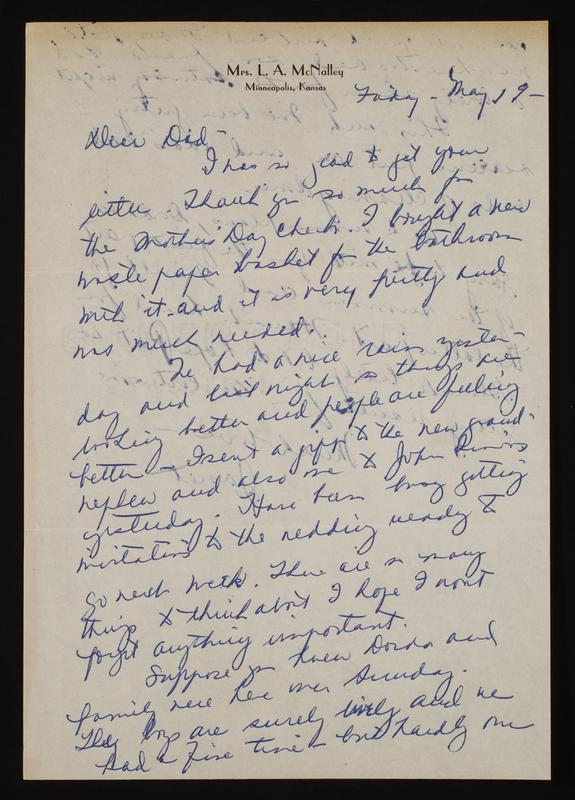 Mrs. L. A. McNalley
Minneapolis, Kansas
Friday - May 19 -
Dear Did -
I was so glad to get your
letter. Thank you so much for
the Mothers' Day Check. I bought a new
waste paper basket for the bathroom
with it - and it is very pretty and
was much needed.
We had a nice rain yester-
day and last night so things are
looking better and people are feeling
better - I sent a gift to the new grand-
nephew and also one to John
yesterday. Have been busy getting
invitations to the wedding ready to
go next week. There are so many
things to think about I hope I won't
forget anything important.
Suppose you knew and
family were here over Sunday.
The boys are surely lively and we
had a fine time - but hardly one